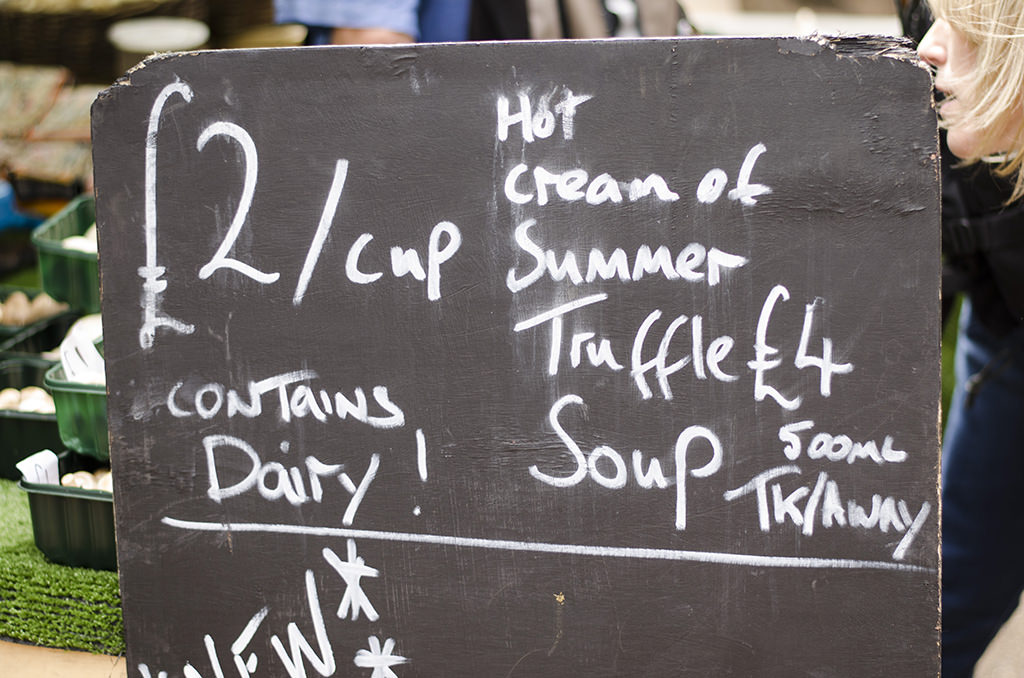 £2/cup
Hot
cream of
Summer
Truffle £4
Soup 500ML
TK/AWAY
CONTAINS
Dairy!
NEW*
*